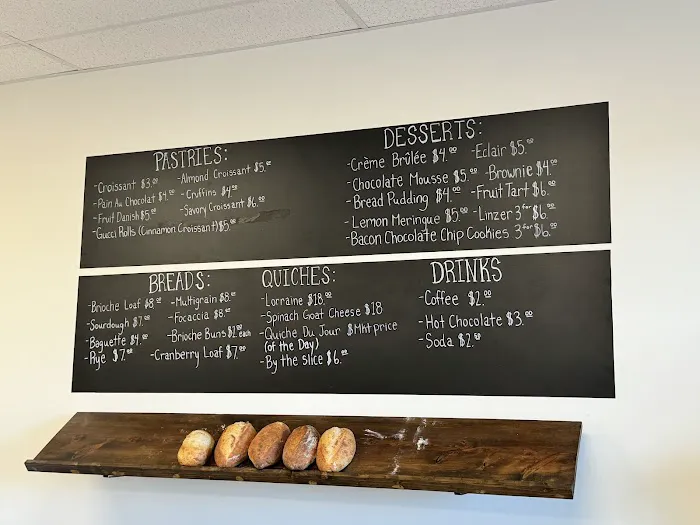 PASTRIES:
-Croissant $3.00
-Pain Au Chocolat $4.00
-Fruit Danish $5.00
-Gucci Rolls (Cinnamon Croissant) $5.00
-Almond Croissant $5.00
-Cruffins $4.00
-Savory Croissant $6.00
DESSERTS:
-Crème Brûlée $4.00
-Chocolate Mousse $5.00
-Bread Pudding $4.00
-Lemon Meringue $5.00
-Bacon Chocolate Chip Cookies 3 for $6.00
-Eclair $5.00
-Brownie $4.00
-Fruit Tart $6.00
-Linzer 3 for $6.00
BREADS:
-Brioche Loaf $8.00
-Sourdough $7.00
-Baguette $4.00
-Rye $7.00
-Multigrain $8.00
-Focaccia $8.00
-Brioche Buns $1.00 each
-Cranberry Loaf $7.00
QUICHES:
-Lorraine $18.00
-Spinach Goat Cheese $18
-Quiche Du Jour $Mkt price
(of the Day)
-By the slice $6.00
DRINKS
-Coffee $2.00
-Hot Chocolate $3.00
-Soda $2.00